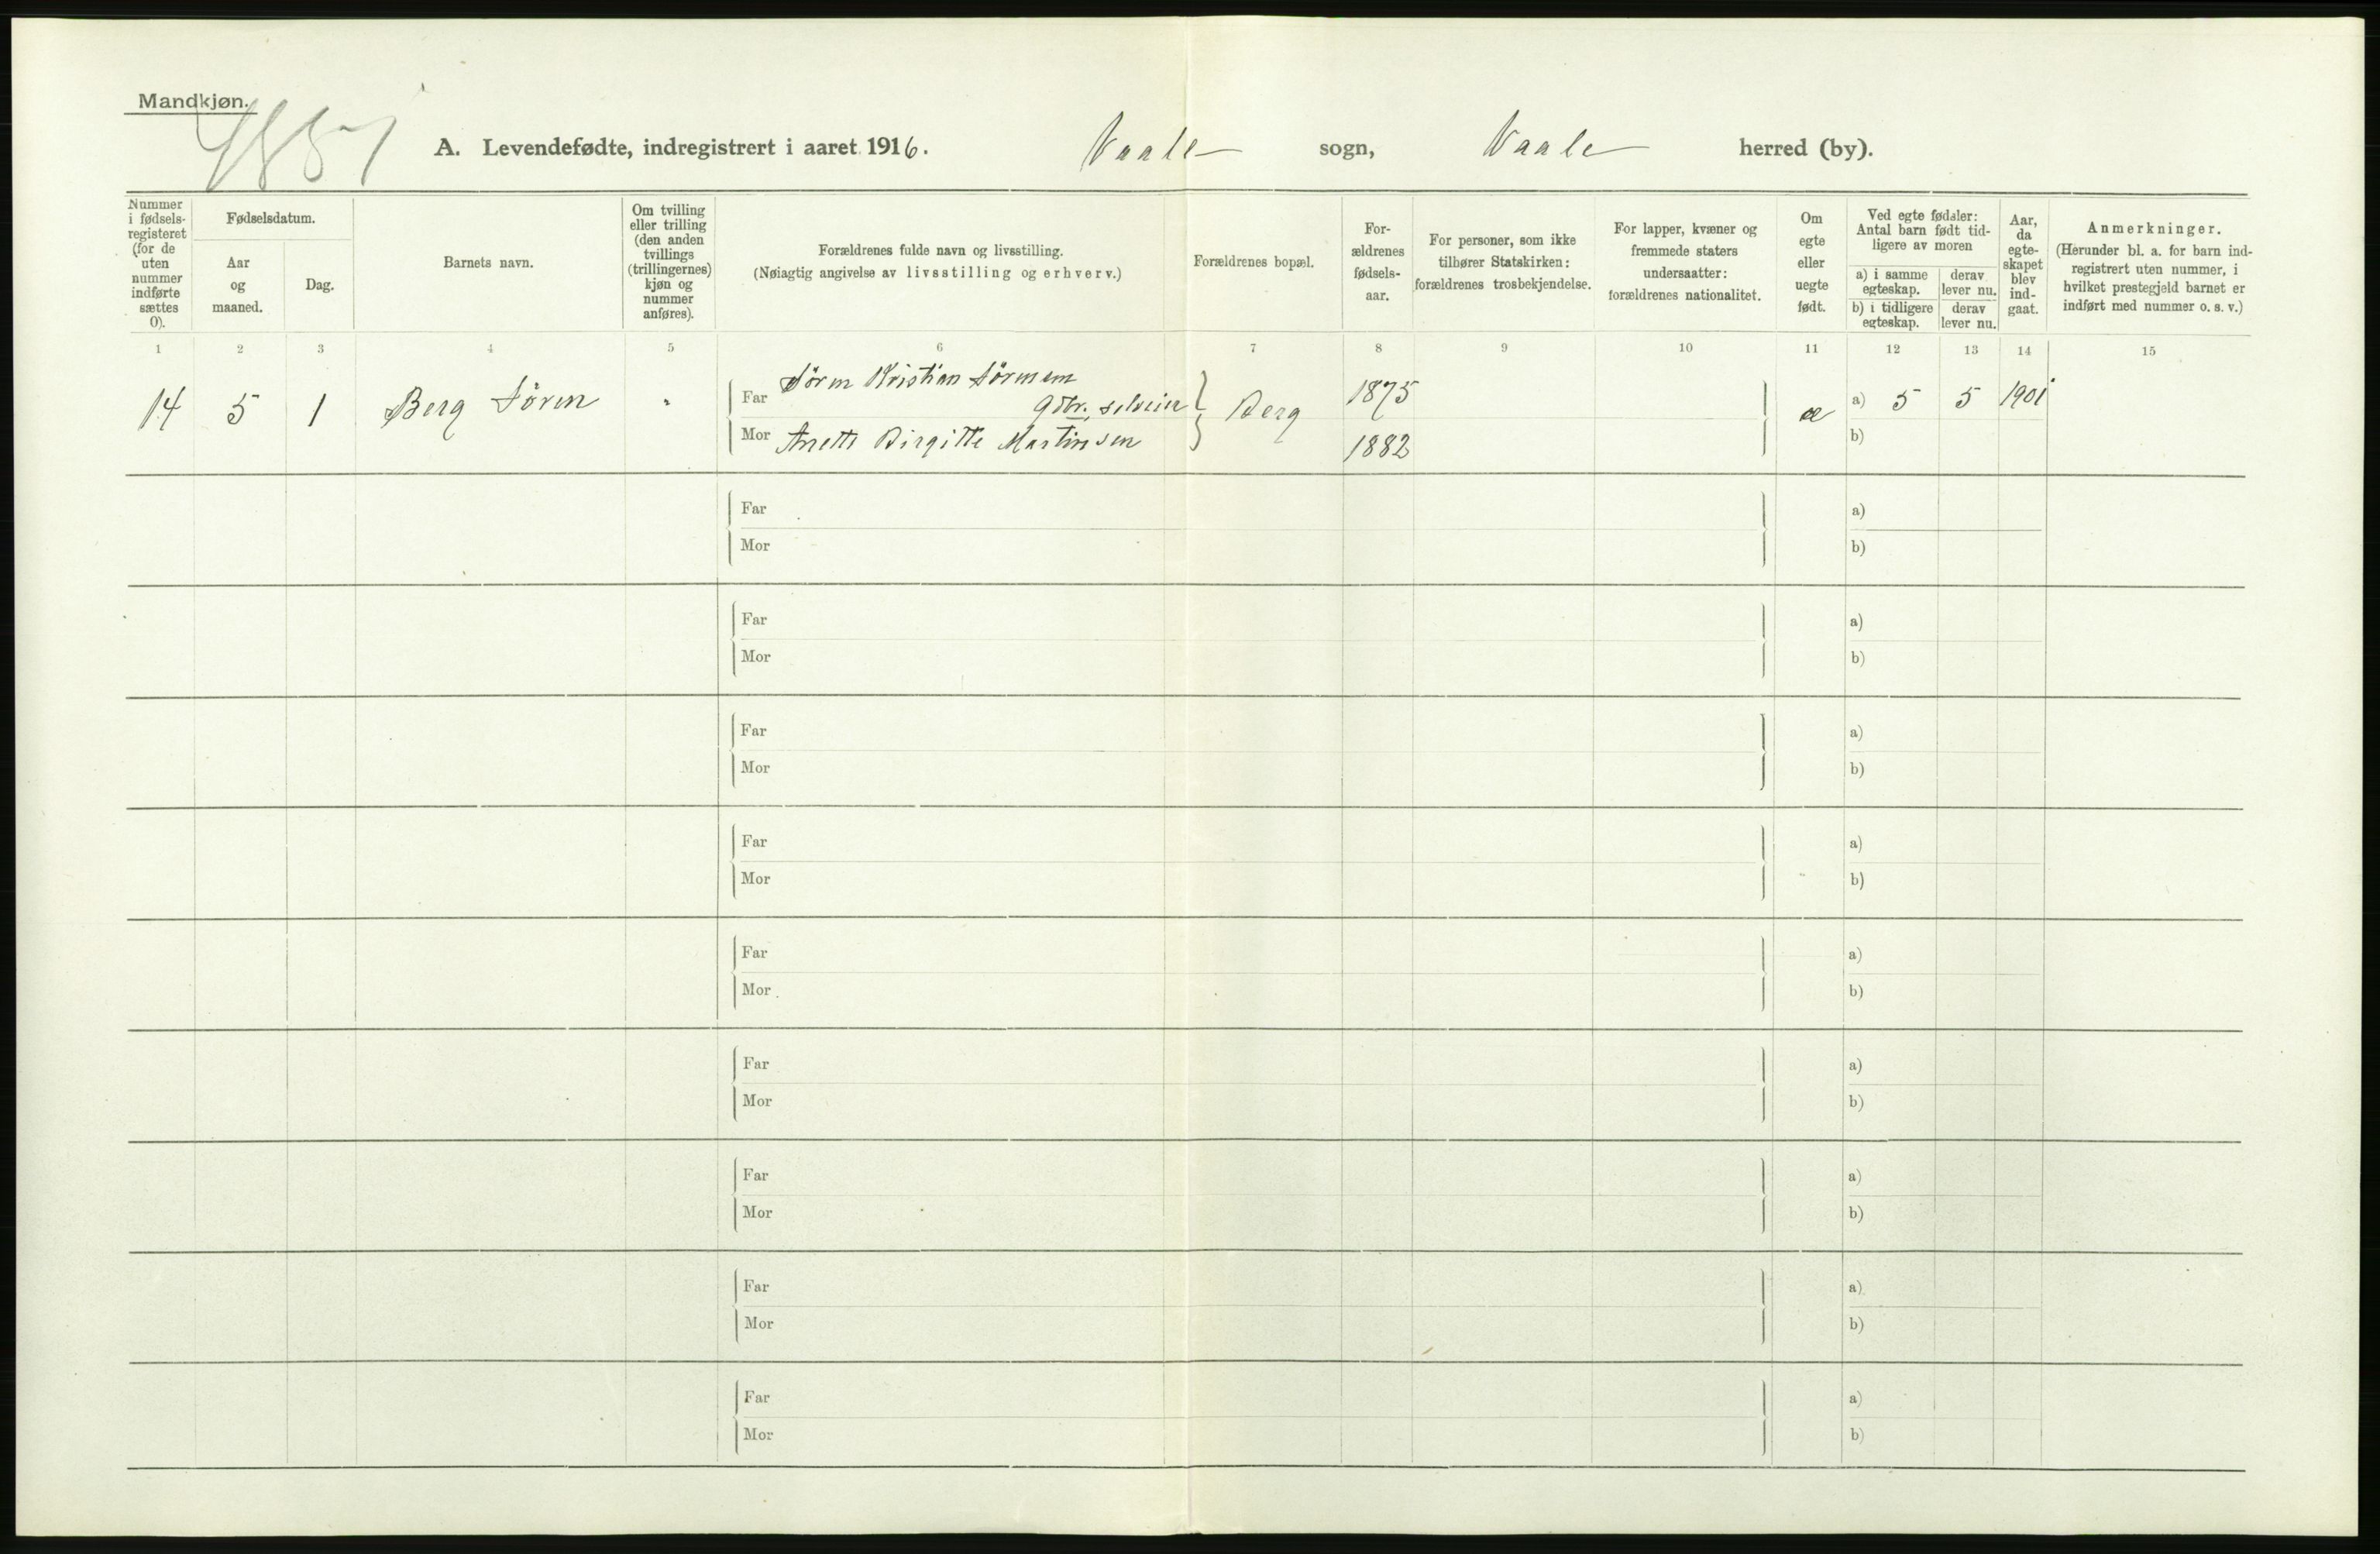 Mandkjøn.
A. Levendefødte, indregistrert i aaret 1916. Vaale sogn, Vaale herred (by).
Nummer i fødsels-registeret (for de uten nummer indførte sættes 0).
Fødselsdatum.
Aar og maaned.
Dag.
Barnets navn.
Om tvilling eller trilling (den anden tvillings (trillingernes) kjøn og nummer anføres).
Forældrenes fulde navn og livsstilling.
(Nøiagtig angivelse av livsstilling og erhverv.)
Forældrenes bopæl.
For-ældrenes fødsels-aar.
For personer, som ikke tilhører Statskirken: forældrenes trosbekjendelse.
For lapper, kvæner og fremmede staters undersaatter: forældrenes nationalitet.
Om egte eller uegte født.
Ved egte fødsler: Antal barn født tid-ligere av moren
a) i samme egteskap.
derav lever nu.
b) i tidligere egteskap.
derav lever nu.
Aar, da egte-skapet blev ind-gaat.
Anmerkninger.
(Herunder bl. a. for barn ind-registrert uten nummer, i hvilket prestegjeld barnet er indført med nummer o. s. v.)
1 2 3 4 5 6 7 8 9 10 11 12 13 14 15
14 5 1 Berg Sören " Far Sören Kristian Sörensen Gbr., selveier Berg 1875 æ a) 5 5 1901
Mor Birgitte Martinsen 1882 b)
Far a)
Mor b)
Far a)
Mor b)
Far a)
Mor b)
Far a)
Mor b)
Far a)
Mor b)
Far a)
Mor b)
Far a)
Mor b)
Far a)
Mor b)
Far a)
Mor b)